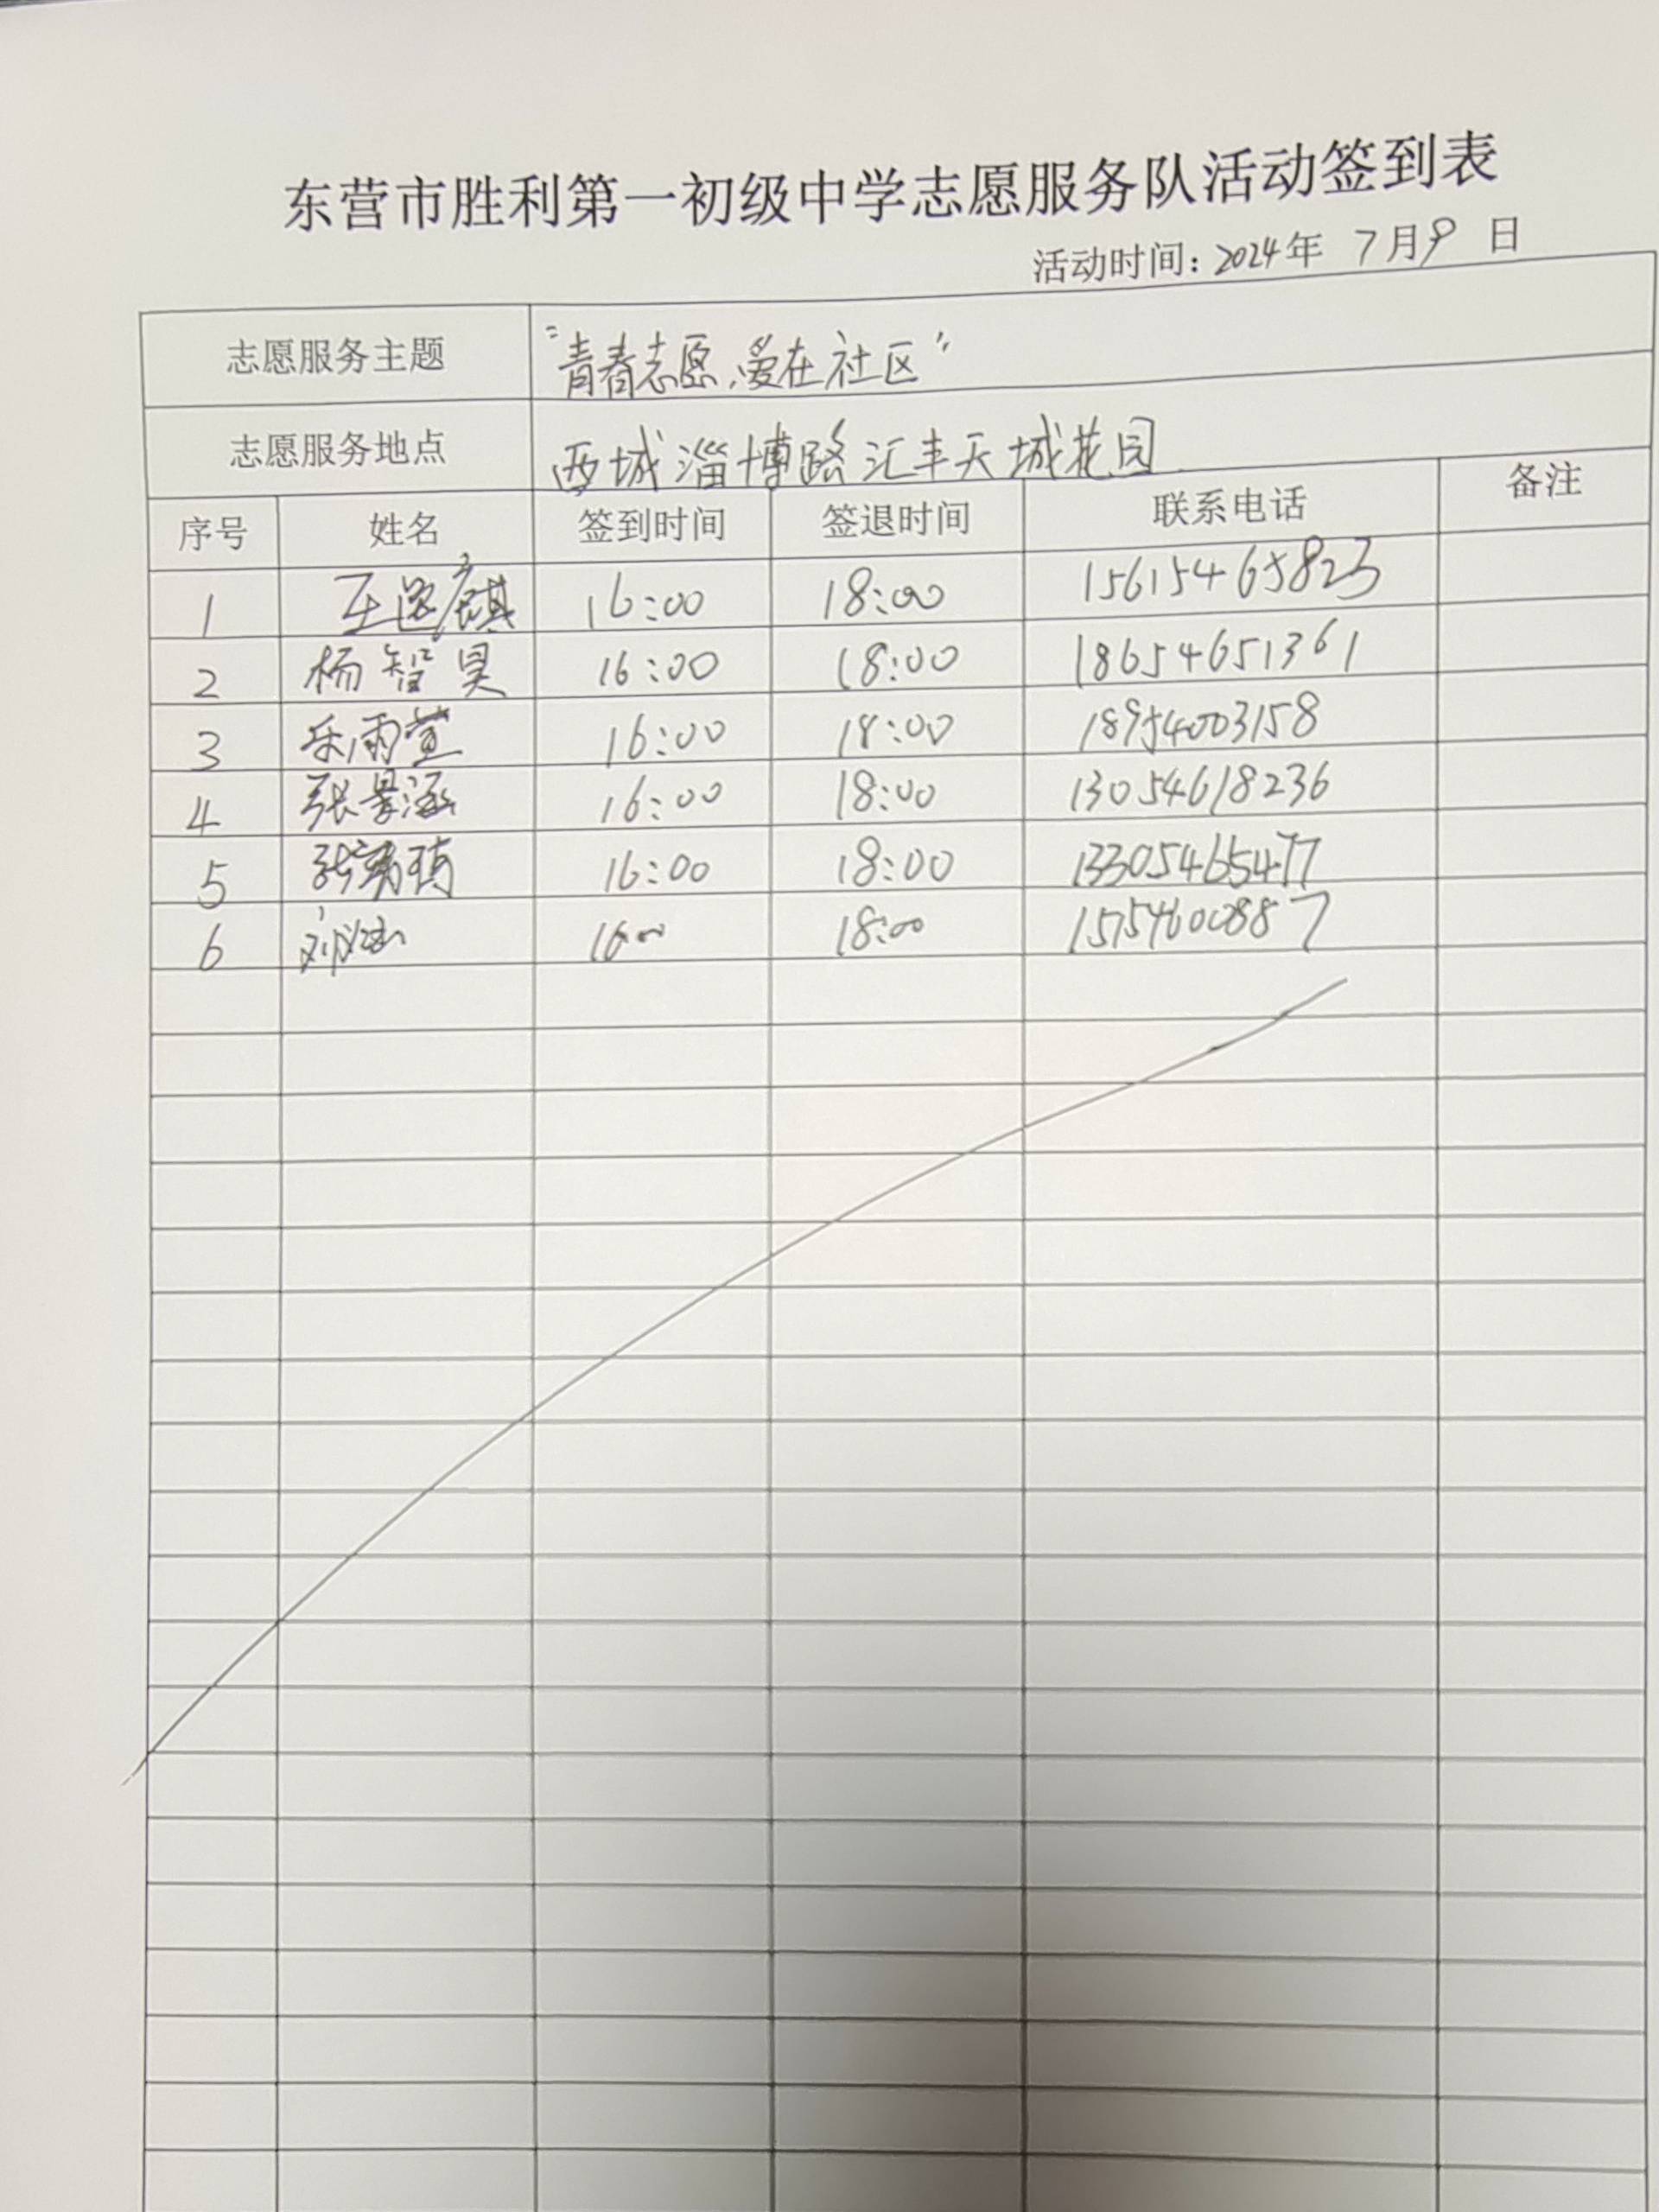 东营市胜利第一初级中学志愿服务队活动签到表
活动时间：2024年 7月9日
志愿服务主题 "青春志愿，爱在社区"
志愿服务地点 西城淄博路汇丰天城花园
序号 姓名 签到时间 签退时间 联系电话 备注
1 王逸麒 16:00 18:00 15615465823
2 杨智昊 16:00 18:00 18654651361
3 乐雨萱 16:00 18:00 18954003158
4 张景涵 16:00 18:00 13054618236
5 16:00 18:00 13305465477
6 16:00 18:00 15754600887